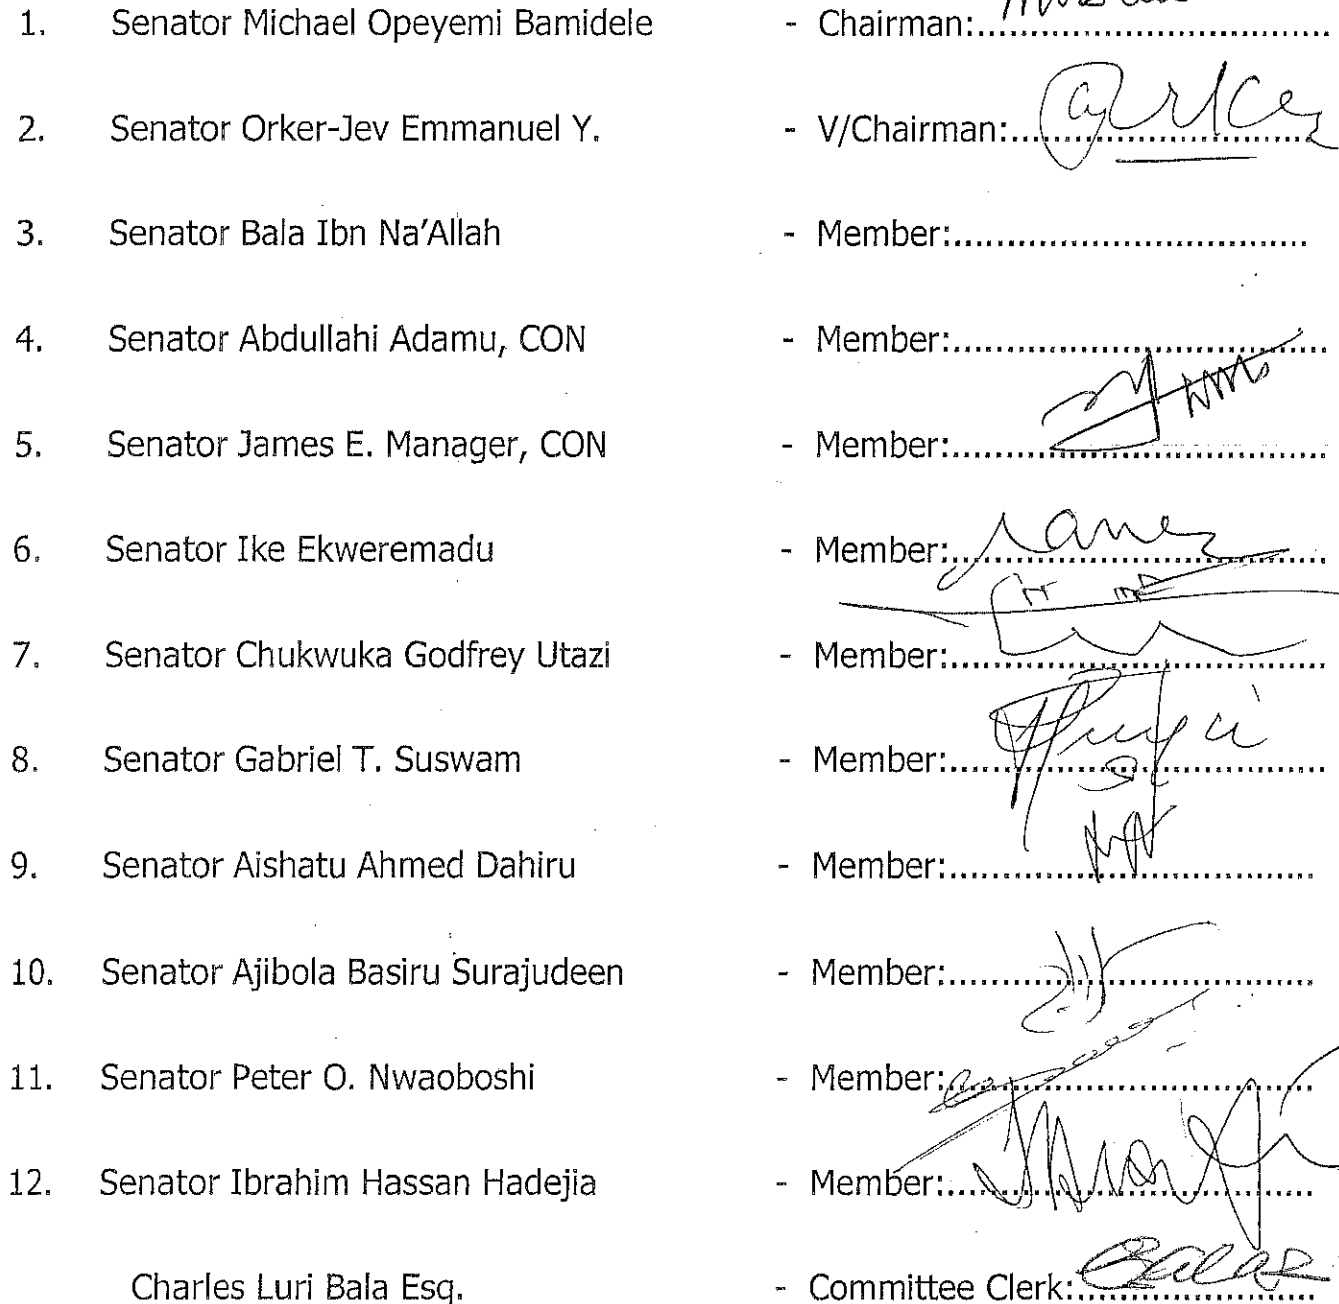 1. Senator Michael Opeyemi Bamidele - Chairman:................................
2. Senator Orker-Jev Emmanuel Y. - V/Chairman:................................
3. Senator Bala Ibn Na'Allah - Member:................................
4. Senator Abdullahi Adamu, CON - Member:................................
5. Senator James E. Manager, CON - Member:................................
6. Senator Ike Ekweremadu - Member:................................
7. Senator Chukwuka Godfrey Utazi - Member:................................
8. Senator Gabriel T. Suswam - Member:................................
9. Senator Aishatu Ahmed Dahiru - Member:................................
10. Senator Ajibola Basiru Surajudeen - Member:................................
11. Senator Peter O. Nwaoboshi - Member:................................
12. Senator Ibrahim Hassan Hadejia - Member:................................
Charles Luri Bala Esq. - Committee Clerk:......................